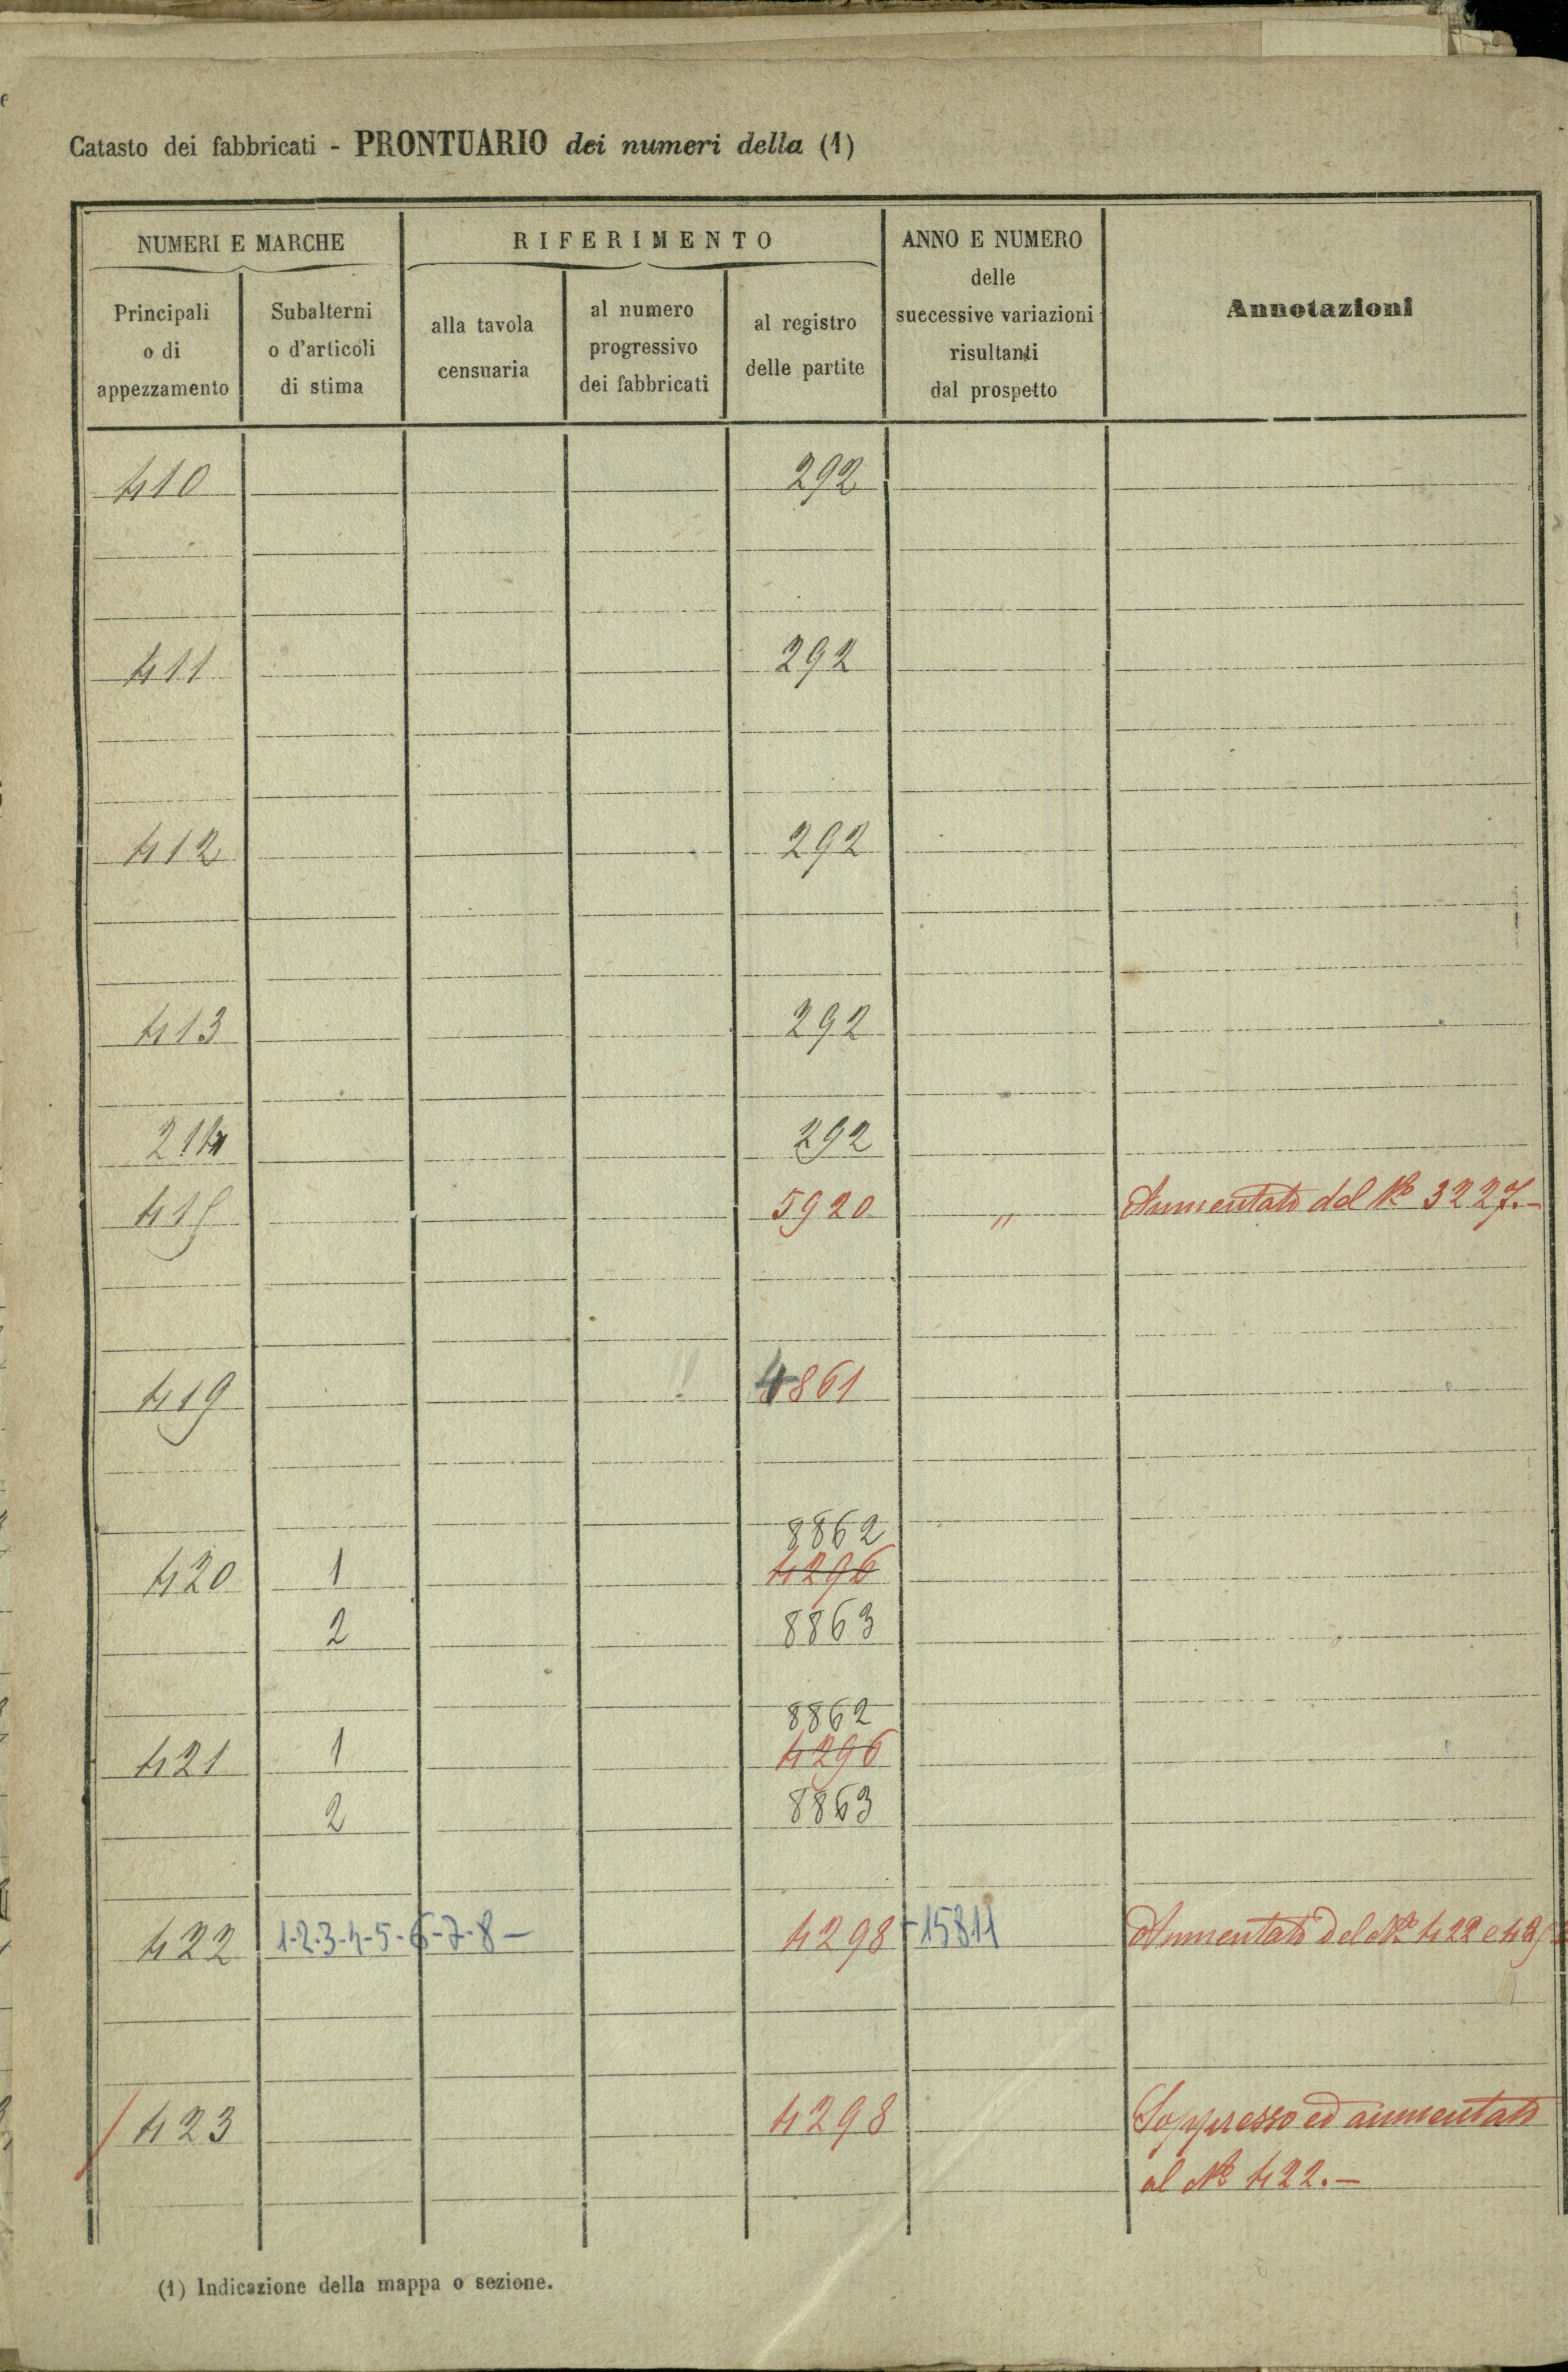 Catasto dei fabbricati - PRONTUARIO dei numeri della (1)
NUMERI E MARCHE
RIFERIMENTO
ANNO E NUMERO
delle
successive variazioni
risultanti
dal prospetto
Annotazioni
Principali
o di
appezzamento
Subalterni
o d'articoli
di stima
alla tavola
censuaria
al numero
progressivo
dei fabbricati
al registro
delle partite
410 292
411 292
412 292
413 292
214 292
415 5920 " Aumentato del N.º 3227.-
419 4861
8862
420 1 4296
2 8863
8862
421 1 4296
2 8863
422 1-2-3-4-5-6-7-8- 4298 -15811 Aumentato del N.º 422 e
423 4298 Soppresso ed aumentato
al N.º 422.-
(1) Indicazione della mappa o sezione.